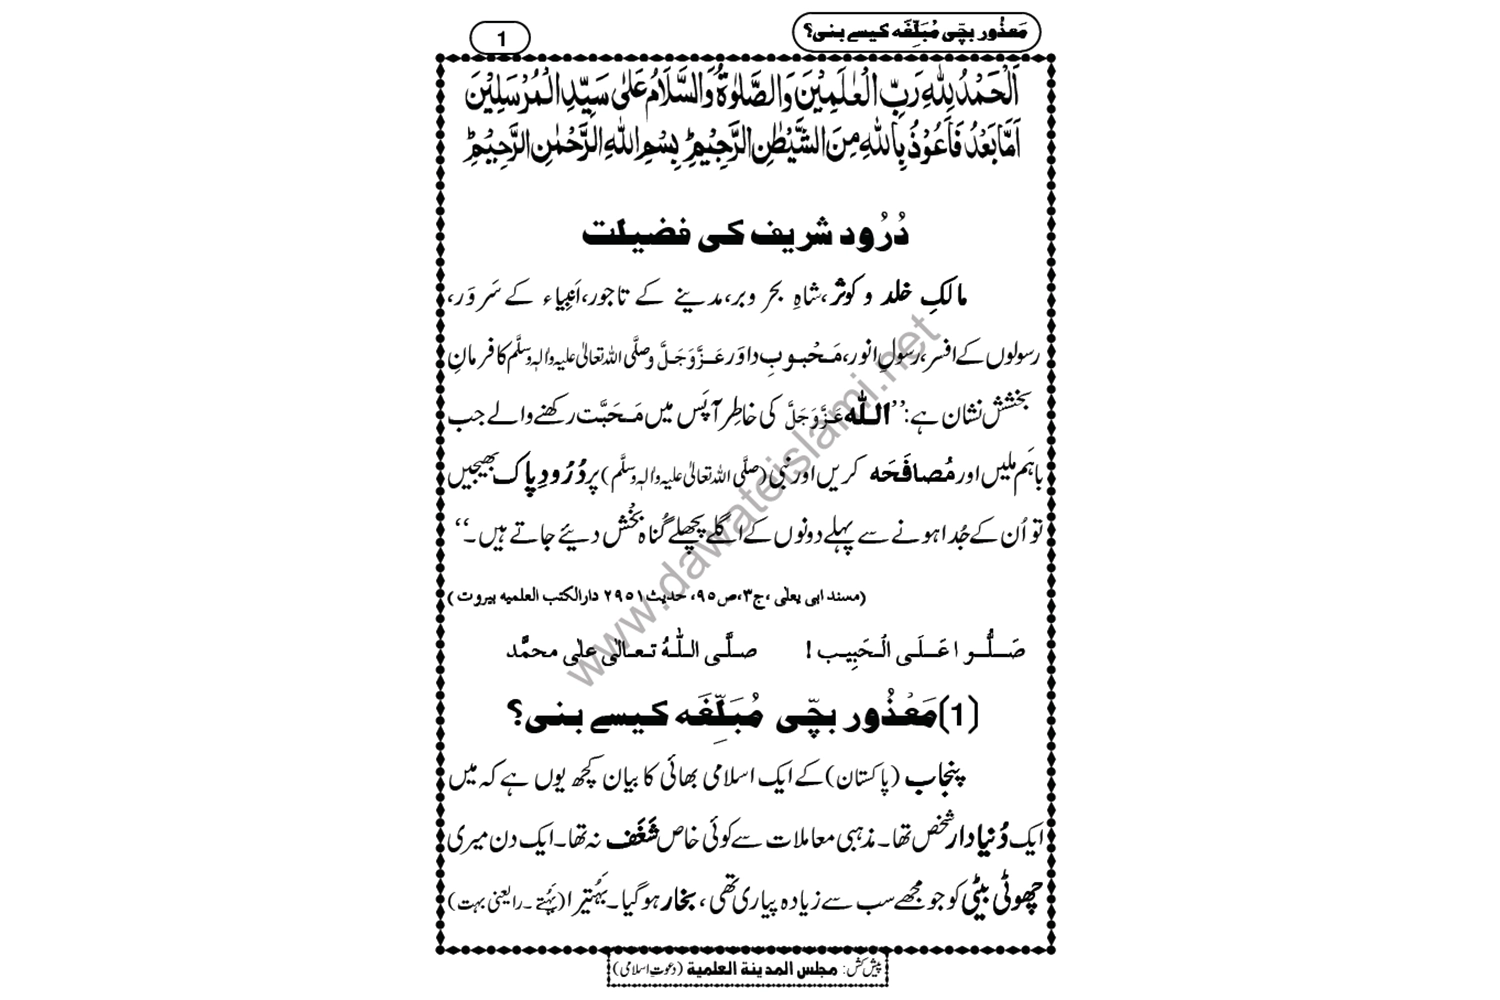 مَعذُور بچّی مُبَلِّغَہ کیسے بنی؟
1
اَلْحَمْدُ لِلّٰہِ رَبِّ الْعٰلَمِیْنَ وَالصَّلٰوۃُ وَالسَّلَامُ عَلٰی سَیِّدِ الْمُرْسَلِیْنَ
اَمَّا بَعْدُ فَاَعُوْذُ بِاللّٰہِ مِنَ الشَّیْطٰنِ الرَّجِیْمِ ؕ بِسْمِ اللّٰہِ الرَّحْمٰنِ الرَّحِیْمِ ؕ
دُرُود شریف کی فضیلت
مالکِ خلد و کوثر، شاہِ بحر و بر، مدینے کے تاجور، اَنبِیاء کے سَروَر،
رسولوں کے افسر، رسولِ انور، مَحْبوبِ داوَر عَزَّوَجَلَّ وصلَّی اللہ تعالیٰ علیہ واٰلہٖ وسلَّم کا فرمانِ
بخشش نشان ہے: ’’اللّٰہ عَزَّوَجَلَّ کی خاطِر آپَس میں مَحَبَّت رکھنے والے جب
باہَم ملیں اور مُصافَحَہ کریں اور نبی (صلَّی اللہ تعالیٰ علیہ واٰلہٖ وسلَّم) پر دُرُودِ پاک بھیجیں
تو اُن کے جُدا ہونے سے پہلے دونوں کے اگلے پچھلے گُناہ بخْش دیئے جاتے ہیں۔‘‘
(مسند ابی یعلٰی ،ج۳،ص۹۵، حدیث۲۹۵۱ دارالکتب العلمیہ بیروت )
صَلُّـــوا عَلَـی الْـحَبِیـب ! صلَّـی اللّٰہُ تـعـالٰی علٰی محمَّد
(1) مَعْذُور بچّی مُبَلِّغَہ کیسے بنی؟
پنجاب (پاکستان) کے ایک اسلامی بھائی کا بیان کچھ یوں ہے کہ میں
ایک دُنیادار شخص تھا۔ مذہبی معاملات سے کوئی خاص شَغَف نہ تھا۔ ایک دن میری
چھوٹی بیٹی کو جو مجھے سب سے زیادہ پیاری تھی، بخار ہوگیا۔ بَہُتیرا (بَہُتے۔را یعنی بہت)
پیش کش: مجلس المدینۃ العلمیۃ (دعوتِ اسلامی)
www.dawateislami.net